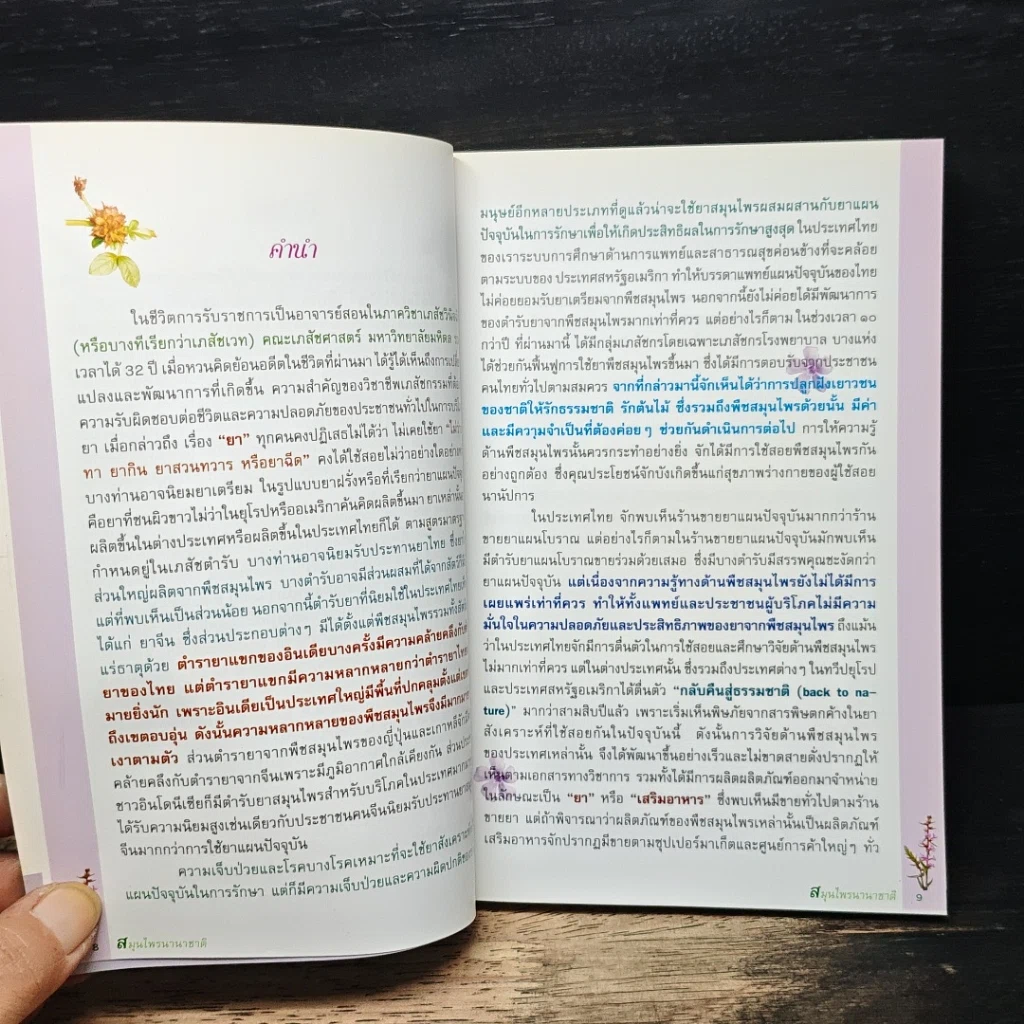 คำนำ
ในชีวิตการรับราชการเป็นอาจารย์สอนในภาควิชาเภสัชวินิจฉัย
(หรือบางทีเรียกว่าเภสัชเวท) คณะเภสัชศาสตร์ มหาวิทยาลัยมหิดล
เวลาได้ 32 ปี เมื่อหวนคิดย้อนอดีตในชีวิตที่ผ่านมา ได้รู้ได้เห็นถึงการเปลี่ยน
แปลงและพัฒนาการที่เกิดขึ้น ความสำคัญของวิชาชีพเภสัชกรรมที่ต้อง
ความรับผิดชอบต่อชีวิตและความปลอดภัยของประชาชนทั่วไปในการ
ยา เมื่อกล่าวถึง เรื่อง “ยา” ทุกคนคงปฏิเสธไม่ได้ว่า ไม่เคยใช้ยา
ทา ยากิน ยาสวนทวาร หรือยาฉีด” คงได้ใช้สอยไม่ว่าอย่างใดอย่าง
บางท่านอาจนิยมยาเตรียม ในรูปแบบยาฝรั่งหรือที่เรียกว่ายาแผนปัจจุบัน
คือยาที่ชนผิวขาวไม่ว่าในยุโรปหรืออเมริกาค้นคิดผลิตขึ้นมา ยาเหล่านี้
ผลิตขึ้นในต่างประเทศหรือผลิตขึ้นในประเทศไทยก็ได้ ตามสูตรมาตรฐาน
กำหนดอยู่ในเภสัชตำรับ บางท่านอาจนิยมรับประทานยาไทย ซึ่งยา
ส่วนใหญ่ผลิตจากพืชสมุนไพร บางตำรับอาจมีส่วนผสมที่ได้จากสัตว์
แต่ที่พบเห็นเป็นส่วนน้อย นอกจากนี้ตำรับยาที่นิยมใช้ในประเทศไทย
ได้แก่ ยาจีน ซึ่งส่วนประกอบต่างๆ มีได้ตั้งแต่พืชสมุนไพรรวมทั้งสัตว์
แร่ธาตุด้วย ตำรายาแขกของอินเดียบางครั้งมีความคล้ายคลึงกับ
ยาของไทย แต่ตำรายาแขกมีความหลากหลายกว่าตำรายาไทย
มายยิ่งนัก เพราะอินเดียเป็นประเทศใหญ่มีพื้นที่ปกคลุมตั้งแต่เขต
ถึงเขตอบอุ่น ดังนั้นความหลากหลายของพืชสมุนไพรจึงมีมาก
เงาตามตัว ส่วนตำรายาจากพืชสมุนไพรของญี่ปุ่นและเกาหลีจัก
คล้ายคลึงกับตำรายาจากจีนเพราะมีภูมิอากาศใกล้เคียงกัน ส่วน
ชาวอินโดนีเซียก็มีตำรับยาสมุนไพรสำหรับบริโภคในประเทศมาก
ได้รับความนิยมสูงเช่นเดียวกับประชาชนคนจีนนิยมรับประทานยา
จีนมากกว่าการใช้ยาแผนปัจจุบัน
ความเจ็บป่วยและโรคบางโรคเหมาะที่จะใช้ยาสังเคราะห์
แผนปัจจุบันในการรักษา แต่ก็มีความเจ็บป่วยและความผิดปกติของ
8
สมุนไพรนานาชาติ
มนุษย์อีกหลายประเภทที่ดูแล้วน่าจะใช้ยาสมุนไพรผสมผสานกับยาแผน
ปัจจุบันในการรักษาเพื่อให้เกิดประสิทธิผลในการรักษาสูงสุด ในประเทศไทย
ของเราระบบการศึกษาด้านการแพทย์และสาธารณสุขค่อนข้างที่จะคล้อย
ตามระบบของ ประเทศสหรัฐอเมริกา ทำให้บรรดาแพทย์แผนปัจจุบันของไทย
ไม่ค่อยยอมรับยาเตรียมจากพืชสมุนไพร นอกจากนี้ยังไม่ค่อยได้มีพัฒนาการ
ของตำรับยาจากพืชสมุนไพรมากเท่าที่ควร แต่อย่างไรก็ตาม ในช่วงเวลา ๑๐
กว่าปี ที่ผ่านมานี้ ได้มีกลุ่มเภสัชกรโดยเฉพาะเภสัชกรโรงพยาบาล บางแห่ง
ได้ช่วยกันฟื้นฟูการใช้ยาพืชสมุนไพรขึ้นมา ซึ่งได้มีการตอบรับจากประชาชน
คนไทยทั่วไปตามสมควร จากที่กล่าวมานี้จักเห็นได้ว่าการปลูกฝังเยาวชน
ของชาติให้รักธรรมชาติ รักต้นไม้ ซึ่งรวมถึงพืชสมุนไพรด้วยนั้น มีค่า
และมีความจำเป็นที่ต้องค่อยๆ ช่วยกันดำเนินการต่อไป การให้ความรู้
ด้านพืชสมุนไพรนั้นควรกระทำอย่างยิ่ง จักได้มีการใช้สอยพืชสมุนไพรกัน
อย่างถูกต้อง ซึ่งคุณประโยชน์จักบังเกิดขึ้นแก่สุขภาพร่างกายของผู้ใช้สอย
นานัปการ
ในประเทศไทย จักพบเห็นร้านขายยาแผนปัจจุบันมากกว่าร้าน
ขายยาแผนโบราณ แต่อย่างไรก็ตามในร้านขายยาแผนปัจจุบันมักพบเห็น
มีตำรับยาแผนโบราณขายร่วมด้วยเสมอ ซึ่งมีบางตำรับมีสรรพคุณชะงัดกว่า
ยาแผนปัจจุบัน แต่เนื่องจากความรู้ทางด้านพืชสมุนไพรยังไม่ได้มีการ
เผยแพร่เท่าที่ควร ทำให้ทั้งแพทย์และประชาชนผู้บริโภคไม่มีความ
มั่นใจในความปลอดภัยและประสิทธิภาพของยาจากพืชสมุนไพร ถึงแม้น
ว่าในประเทศไทยจักมีการตื่นตัวในการใช้สอยและศึกษาวิจัยด้านพืชสมุนไพร
ไม่มากเท่าที่ควร แต่ในต่างประเทศนั้น ซึ่งรวมถึงประเทศต่างๆ ในทวีปยุโรป
และประเทศสหรัฐอเมริกาได้ตื่นตัว “กลับคืนสู่ธรรมชาติ (back to na-
ture)” มากว่าสามสิบปีแล้ว เพราะเริ่มเห็นพิษภัยจากสารพิษตกค้างในยา
สังเคราะห์ที่ใช้สอยกันในปัจจุบันนี้ ดังนั้นการวิจัยด้านพืชสมุนไพร
ของประเทศเหล่านั้น จึงได้พัฒนาขึ้นอย่างเร็วและไม่ขาดสายดั่งปรากฏให้
เห็นตามเอกสารทางวิชาการ รวมทั้งได้มีการผลิตผลิตภัณฑ์ออกมาจำหน่าย
ในลักษณะเป็น “ยา” หรือ “เสริมอาหาร” ซึ่งพบเห็นมีขายทั่วไปตามร้าน
ขายยา แต่ถ้าพิจารณาว่าผลิตภัณฑ์ของพืชสมุนไพรเหล่านั้นเป็นผลิตภัณฑ์
เสริมอาหารจักปรากฏมีขายตามซุปเปอร์มาเก็ตและศูนย์การค้าใหญ่ๆ ทั่ว
สมุนไพรนานาชาติ 9